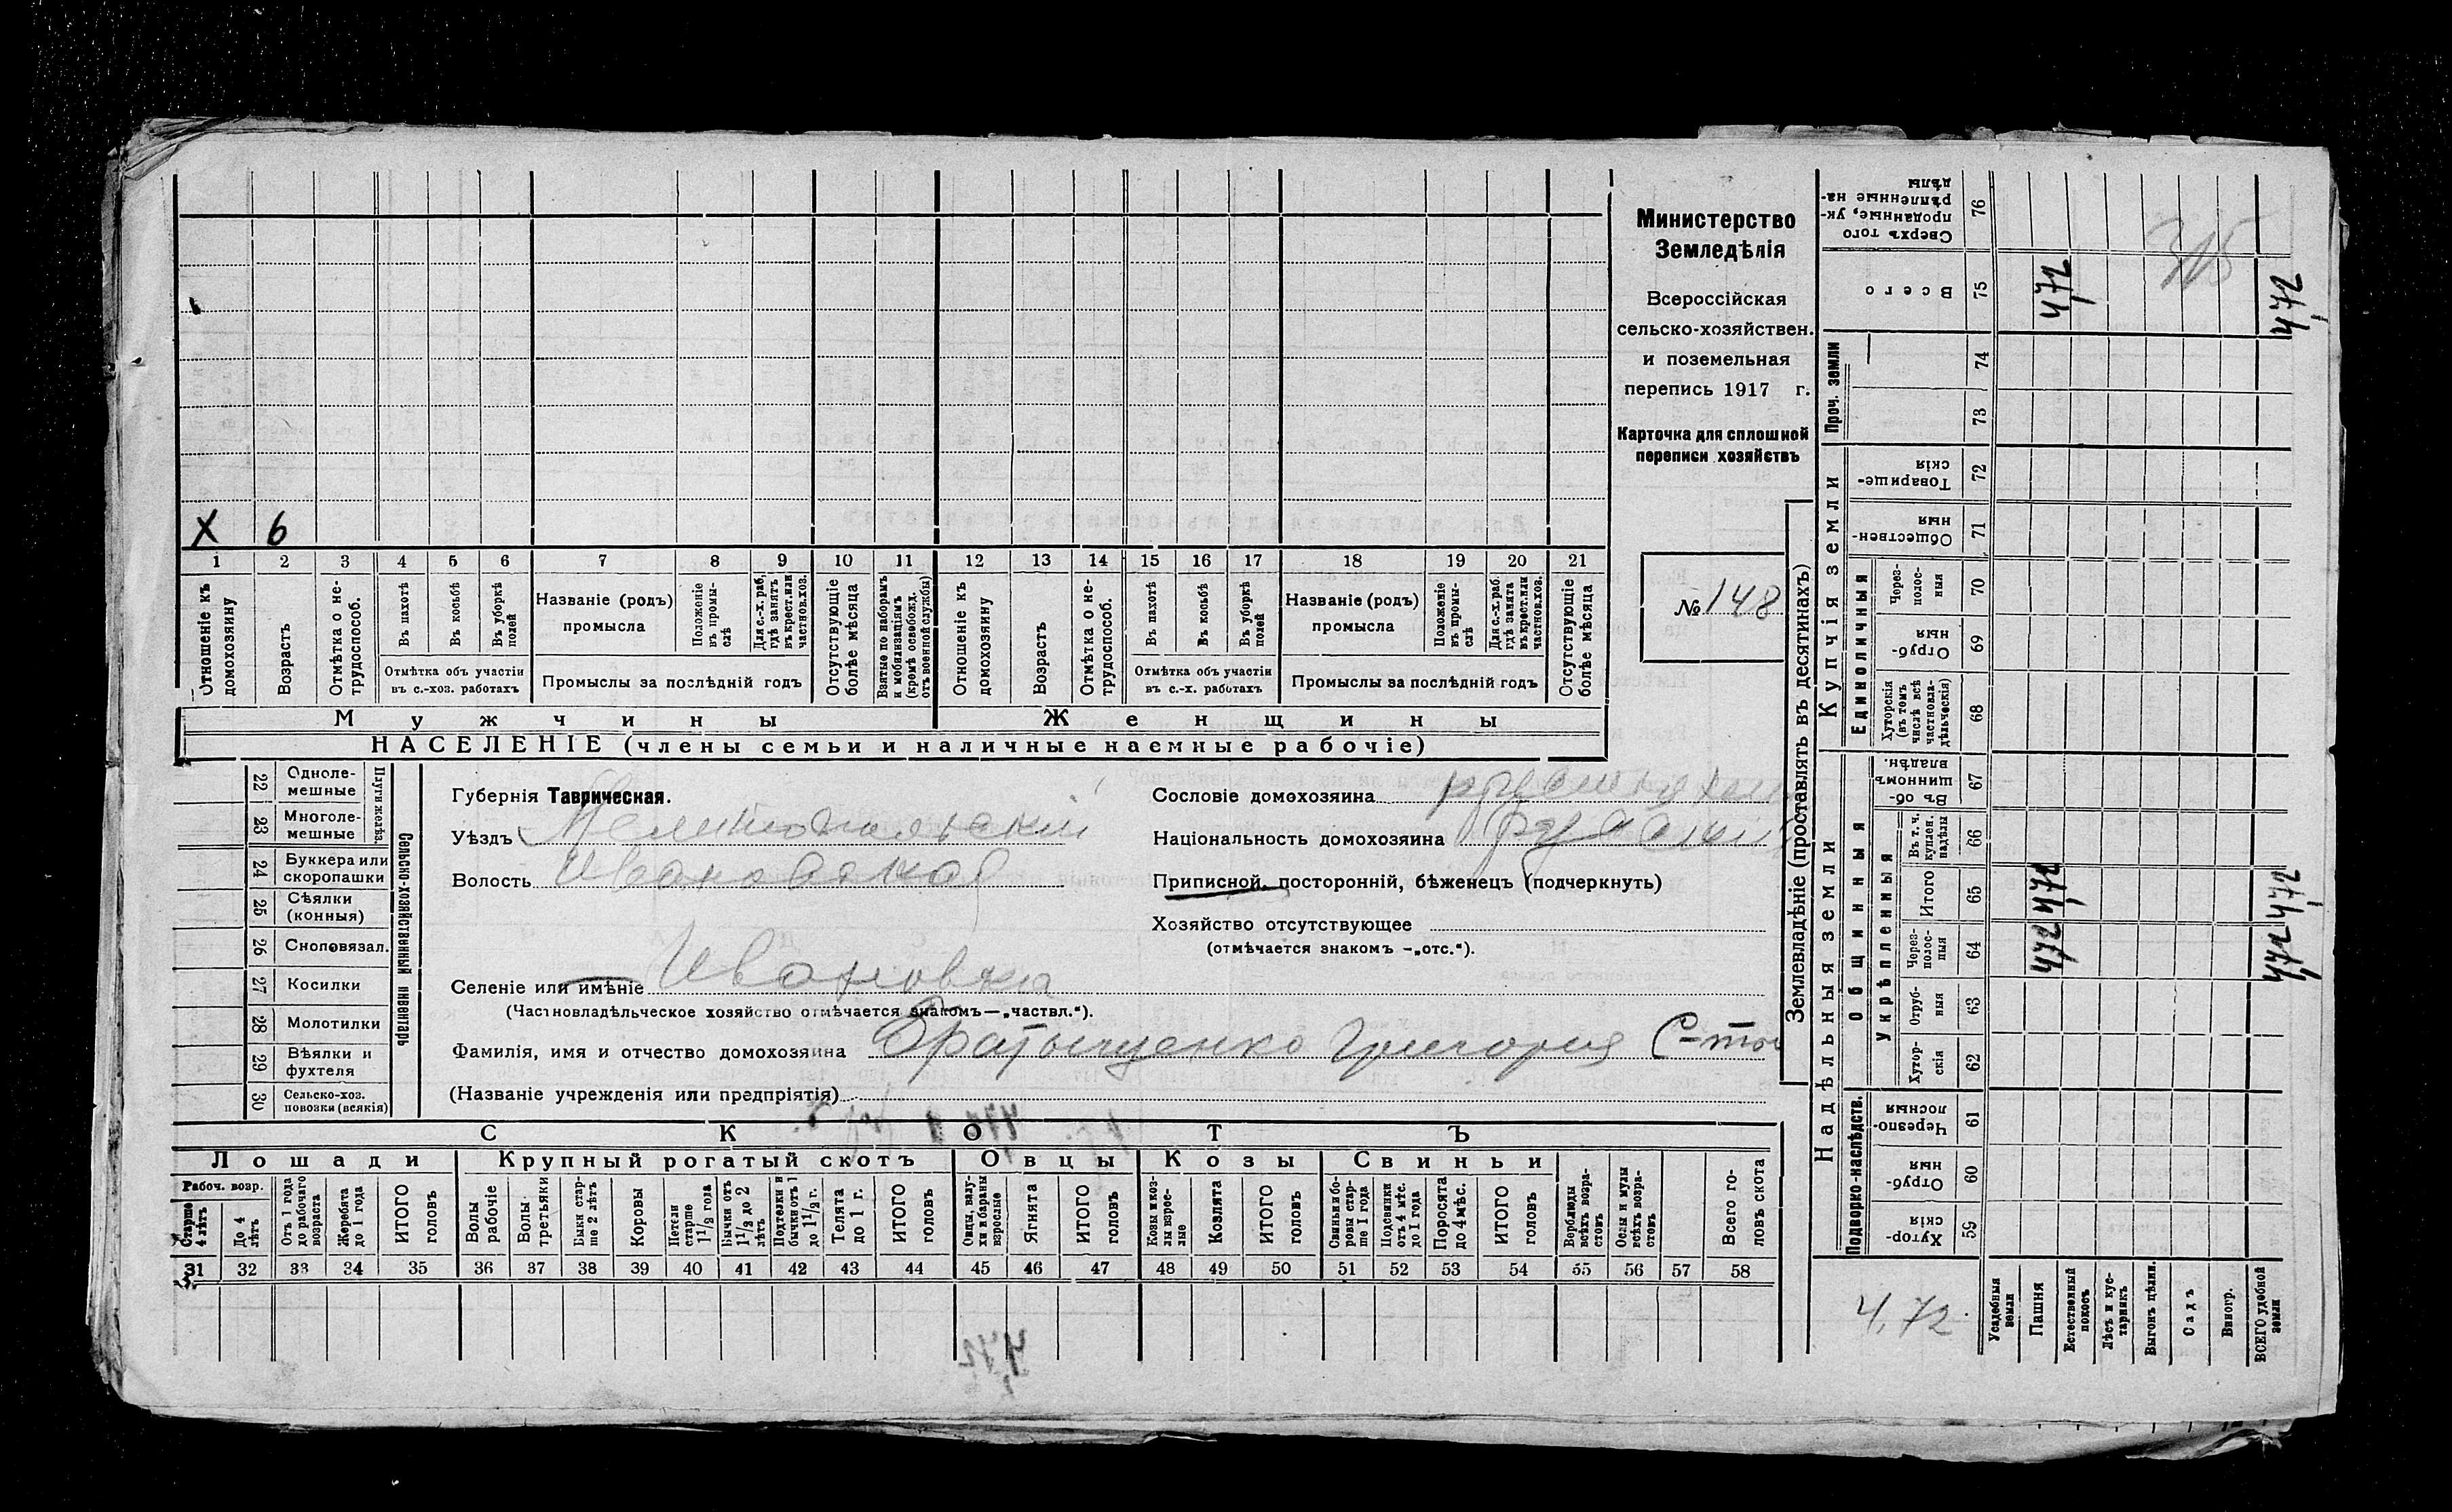 Министерство
Земледѣлія
Всероссійская
сельско-хозяйствен.
и поземельная
перепись 1917 г.
Карточка для сплошной
переписи хозяйствъ
№ 148
X 6
1 2 3 4 5 6 7 8 9 10 11 12 13 14 15 16 17 18 19 20 21
Отношеніе къ домохозяину
Возрастъ
Отмѣтка о не-трудоспособ.
Въ пахотѣ
Въ косьбѣ
Въ уборкѣ полей
Отмѣтка объ участіи
въ с.-хоз. работахъ
Названіе (родъ)
промысла
Положеніе въ промы-слѣ
Для с.-х. раб. гдѣ занятъ въ крест. или частнов. хоз.
Промыслы за послѣдній годъ
Отсутствующіе болѣе мѣсяца
Взятые по наборамъ и мобилизаціямъ (кромѣ освобожд. отъ военной службы)
Отношеніе къ домохозяину
Возрастъ
Отмѣтка о не-трудоспособ.
Въ пахотѣ
Въ косьбѣ
Въ уборкѣ полей
Отмѣтка объ участіи
въ с.-х. работахъ
Названіе (родъ)
промысла
Положеніе въ промы-слѣ
Для с.-х. раб. гдѣ занята въ крест. или частнов. хоз.
Промыслы за послѣдній годъ
Отсутствующіе болѣе мѣсяца
Мужчины
Женщины
НАСЕЛЕНІЕ (члены семьи и наличные наемные рабочіе)
22 Однолемешные
23 Многолемешные
Плуги желѣз.
24 Буккера или скоропашки
25 Сѣялки (конныя)
26 Сноповязал.
27 Косилки
28 Молотилки
29 Вѣялки и фухтеля
30 Сельско-хоз. повозки (всякія)
Сельско-хозяйственный инвентарь
Губернія Таврическая.
Уѣздъ Мелитопольскій
Волость Ивановская
Селеніе или имѣніе Ивановка
(Частновладѣльческое хозяйство отмѣчается знакомъ—„частвл.“).
Фамилія, имя и отчество домохозяина Братыщенко Григорія
(Названіе учрежденія или предпріятія)
Сословіе домохозяина
Національность домохозяина
Приписной, посторонній, бѣженецъ (подчеркнуть)
Хозяйство отсутствующее
(отмѣчается знакомъ -„отс.“).
СКОТЪ
Лошади
Крупный рогатый скотъ
Овцы
Козы
Свиньи
Рабоч. возр.
Старше 4 лѣтъ
До 4 лѣтъ
Отъ 1 года до рабочаго возраста
Жеребята до 1 года
ИТОГО головъ
Волы рабочіе
Волы третьяки
Быки старше 2 лѣтъ
Коровы
Нетели старше 1 1/2 года
Бычки отъ 1 1/2 до 2 лѣтъ
Подтелки и бычки отъ 1 до 1 1/2 г.
Телята до 1 г.
ИТОГО головъ
Овцы, валухи и бараны взрослые
Ягнята
ИТОГО головъ
Козы и козлы взрослые
Козлята
ИТОГО головъ
Свиньи и боровы старше 1 года
Подсвинки отъ 4 мѣс. до 1 года
Поросята до 4 мѣс.
ИТОГО головъ
Верблюды всѣхъ возрастовъ
Ослы и мулы всѣхъ возрастовъ
Всего головъ скота
31 32 33 34 35 36 37 38 39 40 41 42 43 44 45 46 47 48 49 50 51 52 53 54 55 56 57 58
Землевладѣніе (проставлять въ десятинахъ)
Надѣльныя земли
Купчія земли
Проч. земли
Подворно-наслѣдств.
Общинныя
Укрѣпленныя
Единоличныя
Сверхъ того проданные, укрѣпленные надѣлы 76
Всего 75
74
73
Товарищескія 72
Общественныя 71
Черезполосныя 70
Отрубныя 69
Хуторскія (въ томъ числѣ всѣ частновладѣльческія) 68
Въ общинномъ владѣн. 67
Въ т. ч. куплен. надѣлы 66
Итого 65
Черезполосныя 64
Отрубныя 63
Хуторскія 62
Черезполосныя 61
Отрубныя 60
Хуторскія 59
Усадебныя земли
Пашня
Естественный покосъ
Лѣсъ и кустарникъ
Выгонъ цѣлин.
Садъ
Виногр.
ВСЕГО удобной земли
472 472
472 472
472 472
4,72